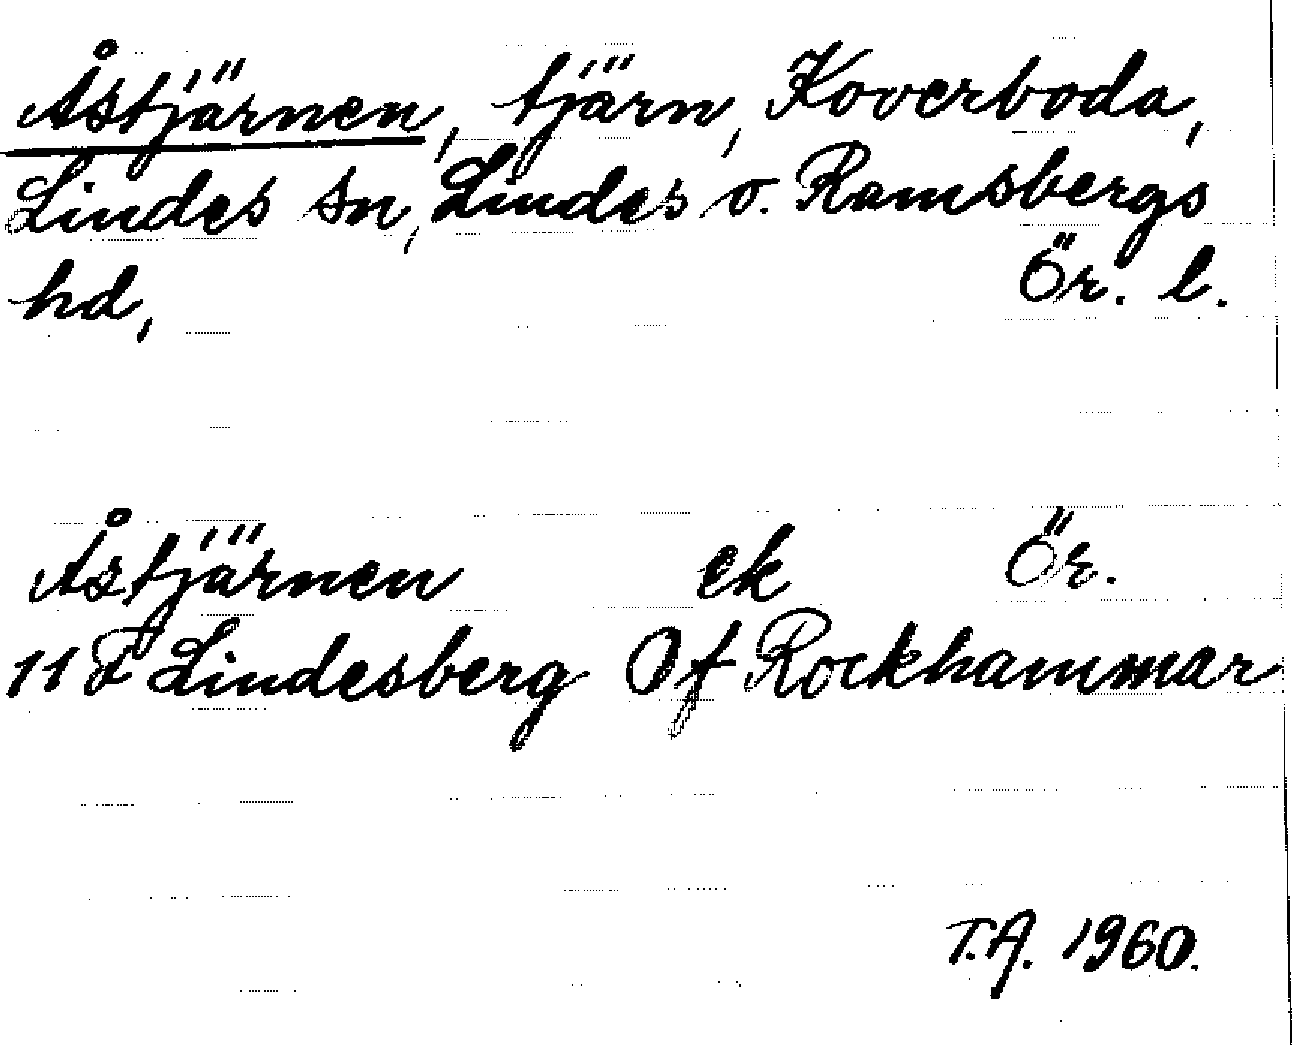 Åstjärnen, tjärn, Koverboda,
Lindes sn, Lindes o. Ramsbergs
hd, Ör. l.
Åstjärnen ek Ör.
11F Lindesberg Öf Rockhammar
T.A. 1960.